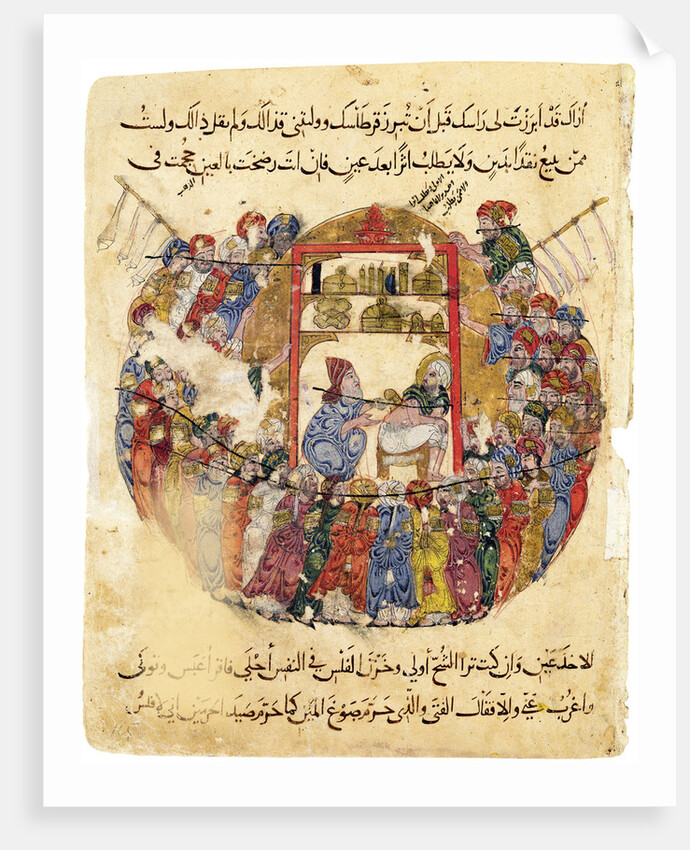 اراك قد ابرزت لي راسك قبل ان تبرز قرطاسك وولیتني قذالك ولم تقل لي ذالك ولست
ممن يبيع نقدا بدين ولا يطلب اثرا بعد عين فان انت رضخت بالعين حجمت في
الاخدعين وان كنت ترا الشح أولى وخزن الفلس في النفس أحلى فاقرا عبس وتولى
واغرب عني والا فقال الفتى والذي حرم صوغ المين كما حرم صيد الحرمين اني لافلس